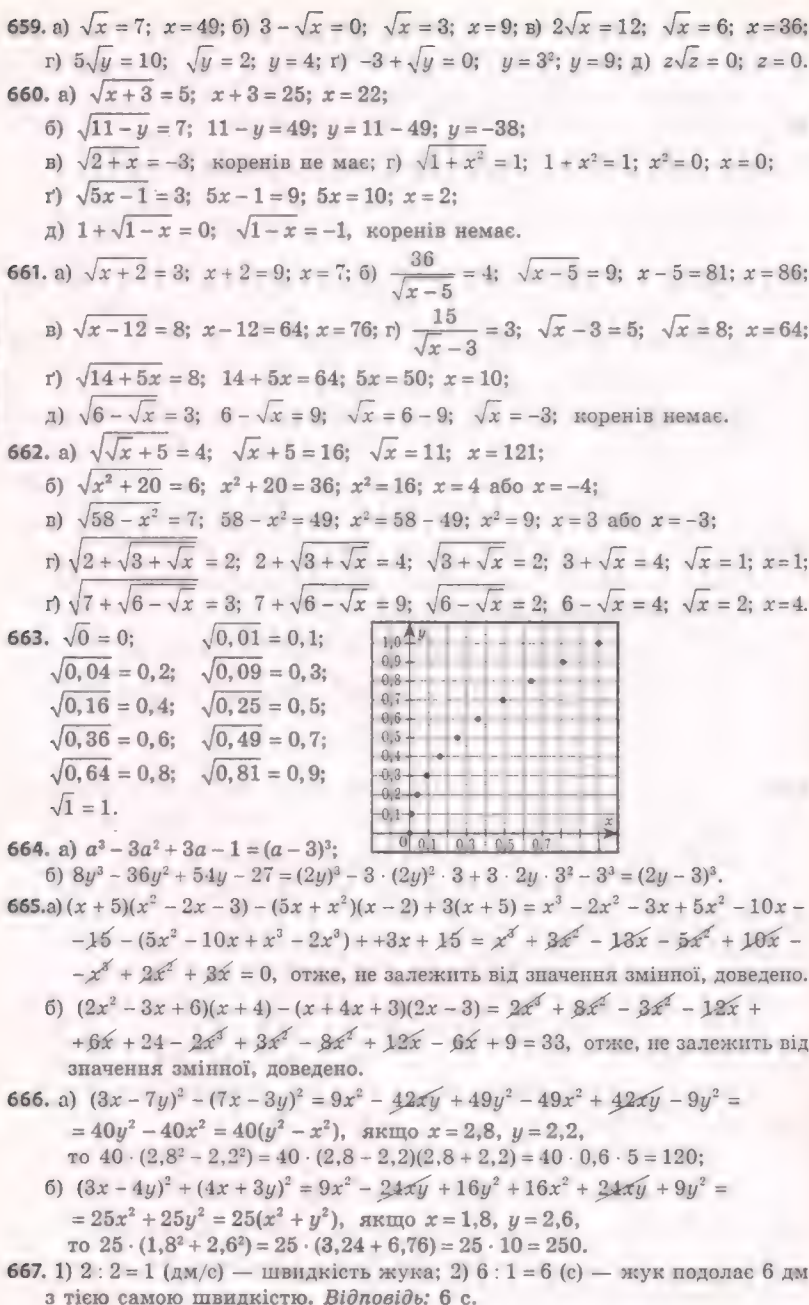 659. а) √x = 7; x = 49; б) 3 – √x = 0; √x = 3; x = 9; в) 2√x = 12; √x = 6; x = 36;
г) 5√y = 10; √y = 2; y = 4; ґ) –3 + √y = 0; y = 3²; y = 9; д) z√z = 0; z = 0.
660. а) √(x + 3) = 5; x + 3 = 25; x = 22;
б) √(11 – y) = 7; 11 – y = 49; y = 11 – 49; y = –38;
в) √(2 + x) = –3; коренів не має; г) √(1 + x²) = 1; 1 + x² = 1; x² = 0; x = 0;
ґ) √(5x – 1) = 3; 5x – 1 = 9; 5x = 10; x = 2;
д) 1 + √(1 – x) = 0; √(1 – x) = –1, коренів немає.
661. а) √(x + 2) = 3; x + 2 = 9; x = 7; б) 36/√(x – 5) = 4; √(x – 5) = 9; x – 5 = 81; x = 86;
в) √(x – 12) = 8; x – 12 = 64; x = 76; г) 15/(√x – 3) = 3; √x – 3 = 5; √x = 8; x = 64;
ґ) √(14 + 5x) = 8; 14 + 5x = 64; 5x = 50; x = 10;
д) √(6 – √x) = 3; 6 – √x = 9; √x = 6 – 9; √x = –3; коренів немає.
662. а) √(√x + 5) = 4; √x + 5 = 16; √x = 11; x = 121;
б) √(x² + 20) = 6; x² + 20 = 36; x² = 16; x = 4 або x = –4;
в) √(58 – x²) = 7; 58 – x² = 49; x² = 58 – 49; x² = 9; x = 3 або x = –3;
г) √(2 + √(3 + √x)) = 2; 2 + √(3 + √x) = 4; √(3 + √x) = 2; 3 + √x = 4; √x = 1; x = 1;
ґ) √(7 + √(6 – √x)) = 3; 7 + √(6 – √x) = 9; √(6 – √x) = 2; 6 – √x = 4; √x = 2; x = 4.
663. √0 = 0; √0,01 = 0,1;
√0,04 = 0,2; √0,09 = 0,3;
√0,16 = 0,4; √0,25 = 0,5;
√0,36 = 0,6; √0,49 = 0,7;
√0,64 = 0,8; √0,81 = 0,9;
√1 = 1.
y
1,0
0,9
0,8
0,7
0,6
0,5
0,4
0,3
0,2
0,1
x
0 0,1 0,3 0,5 0,7 1
664. а) a³ – 3a² + 3a – 1 = (a – 3)³;
б) 8y³ – 36y² + 54y – 27 = (2y)³ – 3 · (2y)² · 3 + 3 · 2y · 3² – 3³ = (2y – 3)³.
665. а) (x + 5)(x² – 2x – 3) – (5x + x²)(x – 2) + 3(x + 5) = x³ – 2x² – 3x + 5x² – 10x –
–15 – (5x² – 10x + x³ – 2x³) + +3x + 15 = x³ + 3x² – 13x – 5x² + 10x –
–x³ + 2x² + 3x = 0, отже, не залежить від значення змінної, доведено.
б) (2x² – 3x + 6)(x + 4) – (x + 4x + 3)(2x – 3) = 2x³ + 8x² – 3x² – 12x +
+6x + 24 – 2x³ + 3x² – 8x² + 12x – 6x + 9 = 33, отже, не залежить від
значення змінної, доведено.
666. а) (3x – 7y)² – (7x – 3y)² = 9x² – 42xy + 49y² – 49x² + 42xy – 9y² =
= 40y² – 40x² = 40(y² – x²), якщо x = 2,8, y = 2,2,
то 40 · (2,8² – 2,2²) = 40 · (2,8 – 2,2)(2,8 + 2,2) = 40 · 0,6 · 5 = 120;
б) (3x – 4y)² + (4x + 3y)² = 9x² – 24xy + 16y² + 16x² + 24xy + 9y² =
= 25x² + 25y² = 25(x² + y²), якщо x = 1,8, y = 2,6,
то 25 · (1,8² + 2,6²) = 25 · (3,24 + 6,76) = 25 · 10 = 250.
667. 1) 2 : 2 = 1 (дм/с) — швидкість жука; 2) 6 : 1 = 6 (с) — жук подолає 6 дм
з тією самою швидкістю. Відповідь: 6 с.